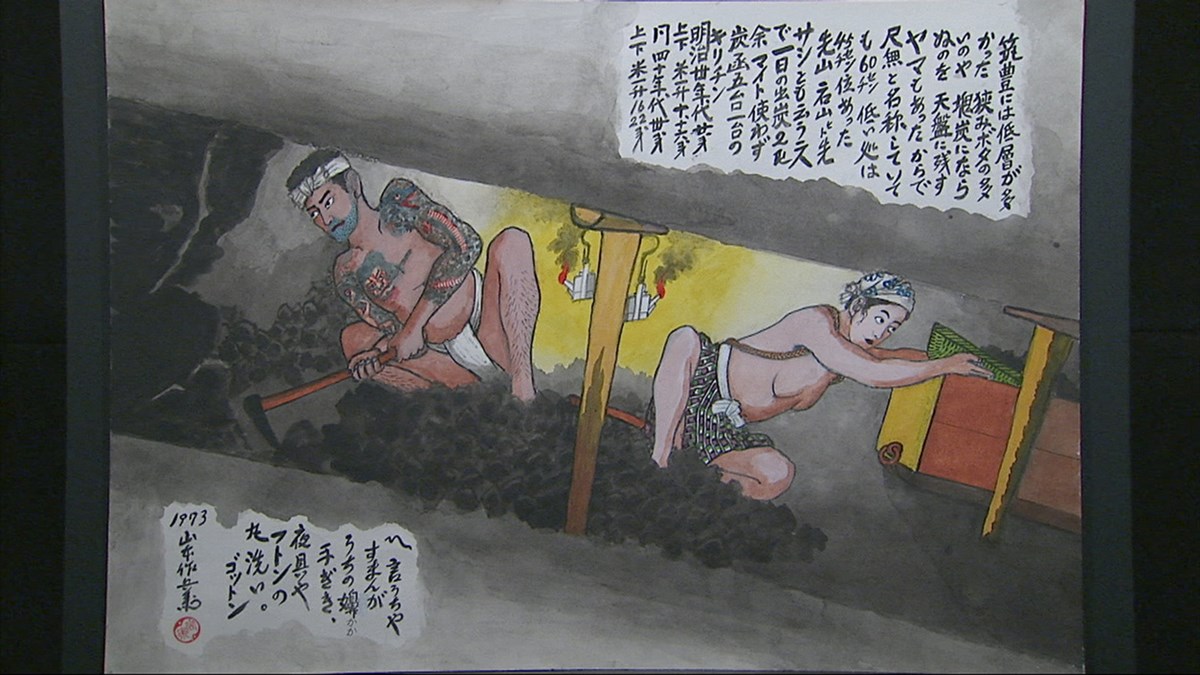 筑豊には低層が多
かった 狭みボタの多
いのや 塊炭になら
ぬのを 天盤に残す
ヤマもあったからで
尺無と名称していて
も60㌢ 低い処は
位あった
先山 右山ト 先
サシとも云う 二人
で一日の出炭
余 マイト使わず
炭函五台 一台の
キリチン
明治卅年代
上下 米一升
同 四十年代
上下 米一升
〽 言うちや
すまんが
うちの嬶かか
手ぎき、
夜具や
フトンの
丸洗い。
ゴットン
1973
山本作兵衛